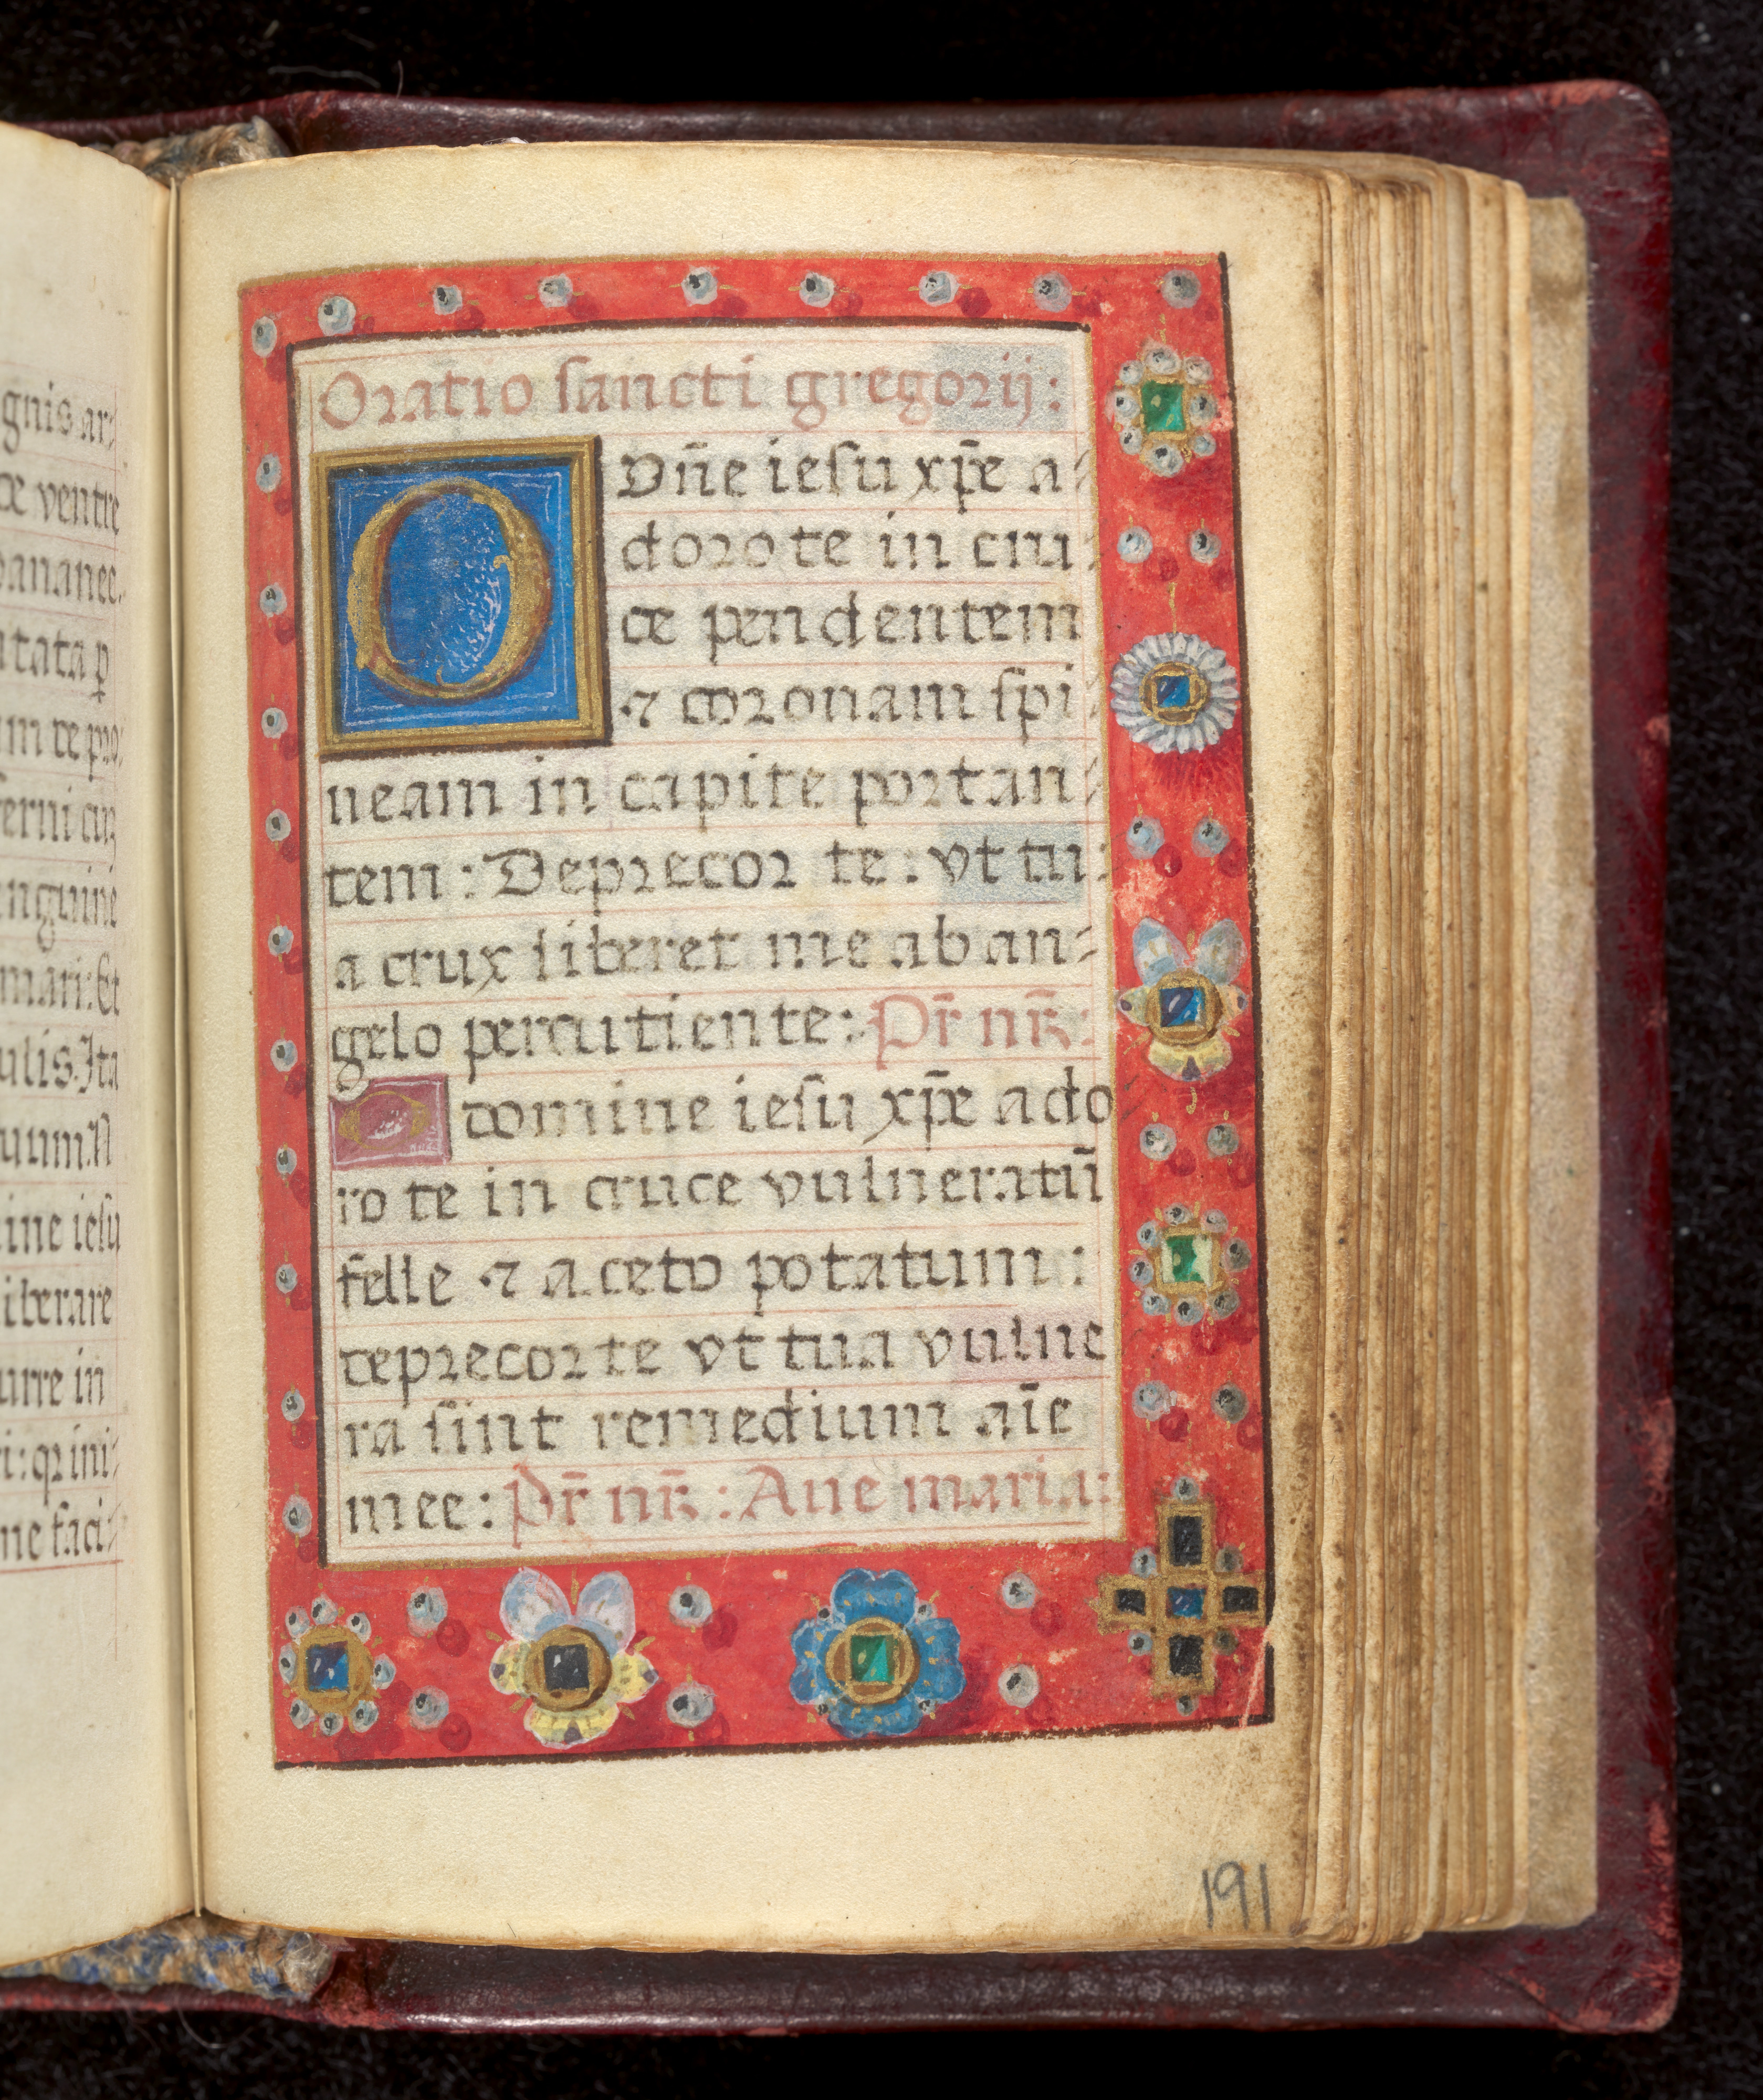 gnis ar
ce ventre
ananee
tata p
m te pro
erni cru
nguine
mari: Et
ulis. Ita
uum. N
ine iesu
iberare
urre in
i: qr ini
ne faci
Oratio sancti gregorij:
O dn̄e iesu xp̄e a-
doro te in cru-
ce pendentem
⁊ coronam spi-
neam in capite portan-
tem: Deprecor te: vt tu-
a crux liberet me ab an-
gelo percutiente: Pr̄ nr̄:
O domine iesu xp̄e ado
ro te in cruce vulneratū
felle ⁊ aceto potatum:
deprecor te vt tua vulne
ra sint remedium aīe
mee: Pr̄ nr̄: Aue maria:
191